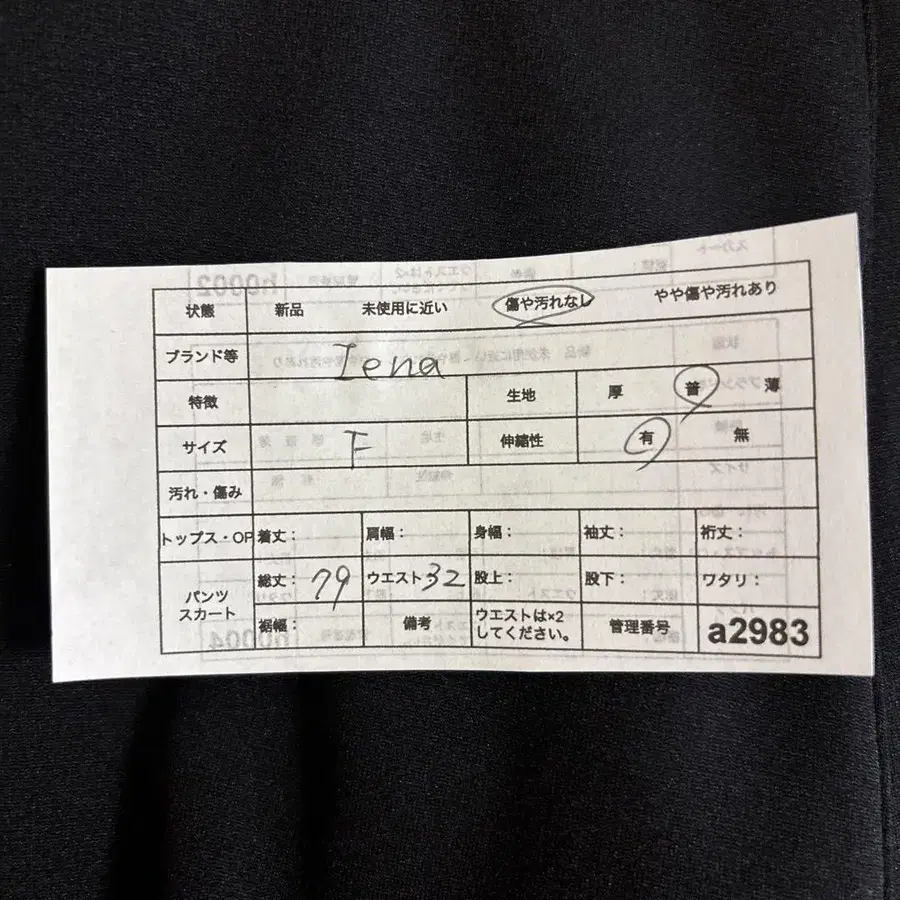 状態 新品 未使用に近い 傷や汚れなし やや傷や汚れあり
ブランド等 Iena
特徴 生地 厚 普 薄
サイズ F 伸縮性 有 無
汚れ・傷み
トップス・OP 着丈: 肩幅: 身幅: 袖丈: 裄丈:
パンツ スカート 総丈: 79 ウエスト: 32 股上: 股下: ワタリ:
裾幅: 備考 ウエストは×2 してください。 管理番号 a2983